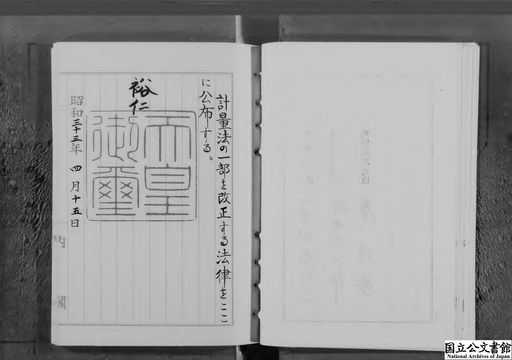 計量法の一部を改正する法律をここ
に公布する。
裕仁
天皇
御璽
昭和三十三年 四月十五日
内閣
国立公文書館
National Archives of Japan